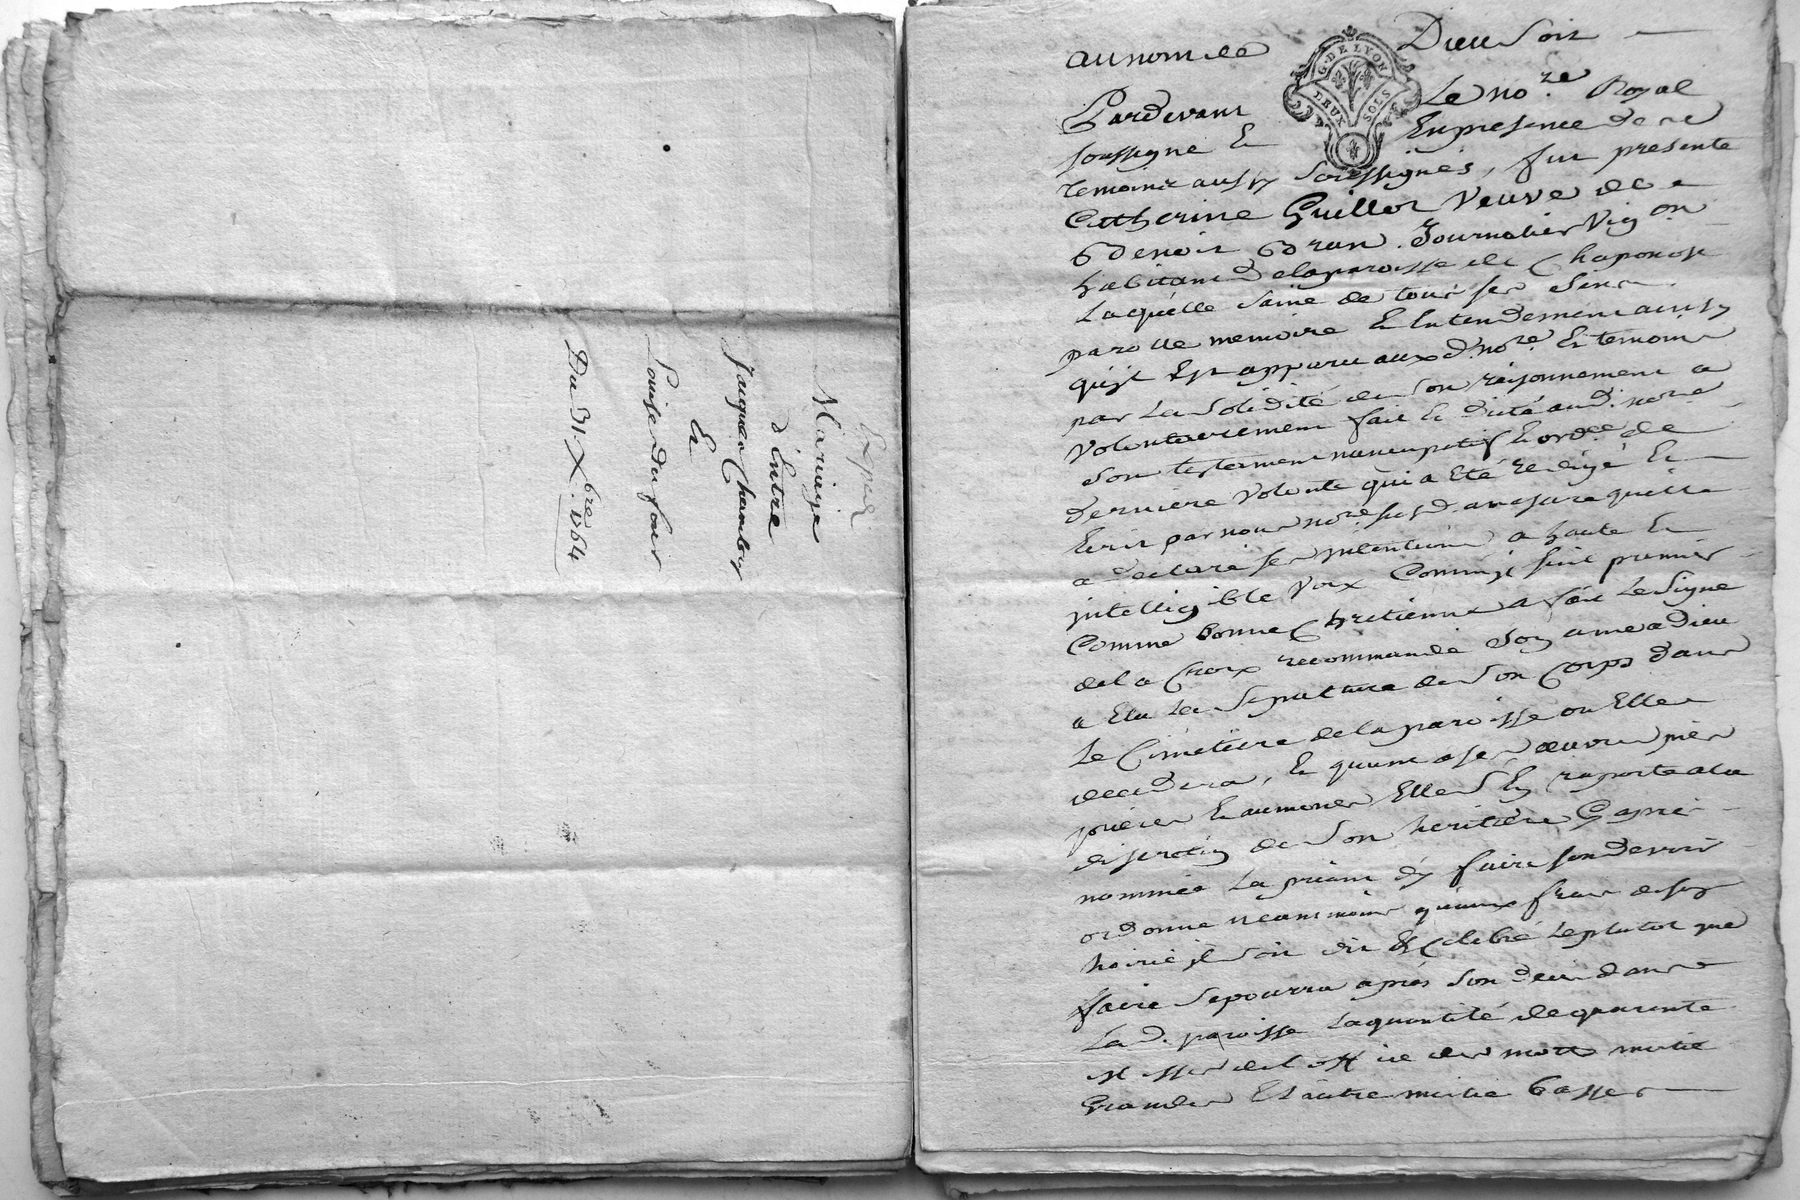 Exped
Mariage
d'Entre
Jacques Chambry
Et
Louise du four
Du 31 Xbre 1764
G. DE LYON
DEUX SOLS
au nom de Dieu soit
Pardevant Le no.re Royal
soussigne Et En presence de ce
temoins aussy soussignés, fut presente
Catherine Guillot Veuve de
Benoit Bran Journalier Vigon
habitant de la paroisse de Chaponost
Laquelle saine de tous ses sens
parolle memoire Et Entendement ainsy
quil Est apparu aux d. no.re Et temoins
par La solidité de son raisonnement a
Volontairement fait Et dicté aud. no.re
son testament nuncupatif Et ord.ce de
derniere Volonté qui a Eté redigé Et
Ecrit par nous no.re susd. a mesure quelle
a declaré ses intentions a haute Et
intelligible Voix Comme suit premier
Comme bonne Chretienne a fait Le signe
de la Croix recommandé son ame a Dieu
a Elu La sepulture de son Corps dans
Le Cimetiere de la paroisse ou Elle
decedera, Et quant a ses œuvres pies
prieres Et aumones Elle s'En raporte a la
discretion de son heritiere Cy apres
nommée La priant d'y faire son devoir
ordonne neanmoins quaux frais de son
hoirie il soit dit Et Celebré Le plutot que
faire se pourra après son deces dans
La d. paroisse La quantité de quarante
messes de l'office des morts moitié
Grandes Et l'autre moitié basses